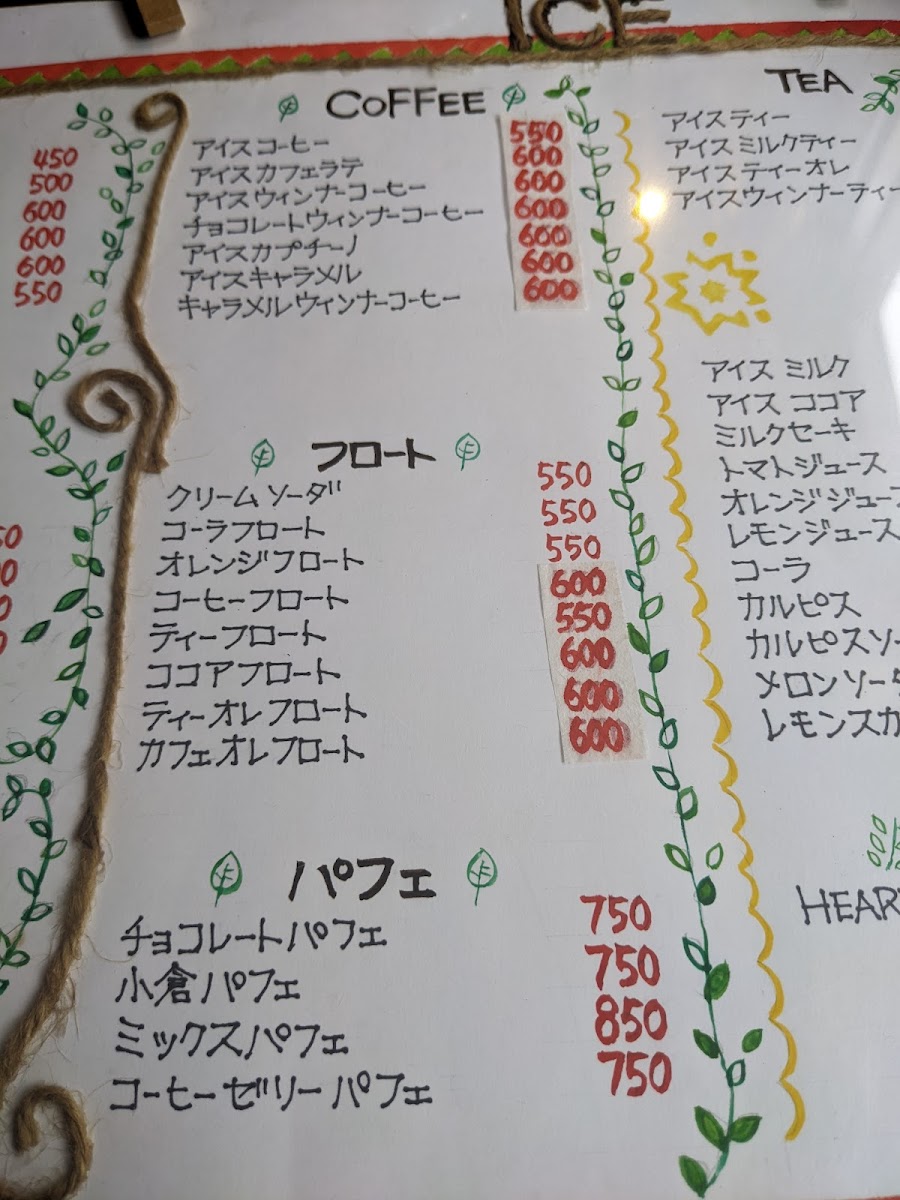 ICE
450
500
600
600
600
550
COFFEE
アイスコーヒー 550
アイスカフェラテ 600
アイスウィンナーコーヒー 600
チョコレートウィンナーコーヒー 600
アイスカプチーノ 600
アイスキャラメル 600
キャラメルウィンナーコーヒー 600
フロート
クリームソーダ 550
コーラフロート 550
オレンジフロート 550
コーヒーフロート 600
ティーフロート 550
ココアフロート 600
ティーオレフロート 600
カフェオレフロート 600
パフェ
チョコレートパフェ 750
小倉パフェ 750
ミックスパフェ 850
コーヒーゼリーパフェ 750
TEA
アイスティー
アイスミルクティー
アイスティーオレ
アイスウィンナーティー
アイス ミルク
アイス ココア
ミルクセーキ
トマトジュース
オレンジジュース
レモンジュース
コーラ
カルピス
カルピスソー
メロンソーダ
レモンスカ
HEART